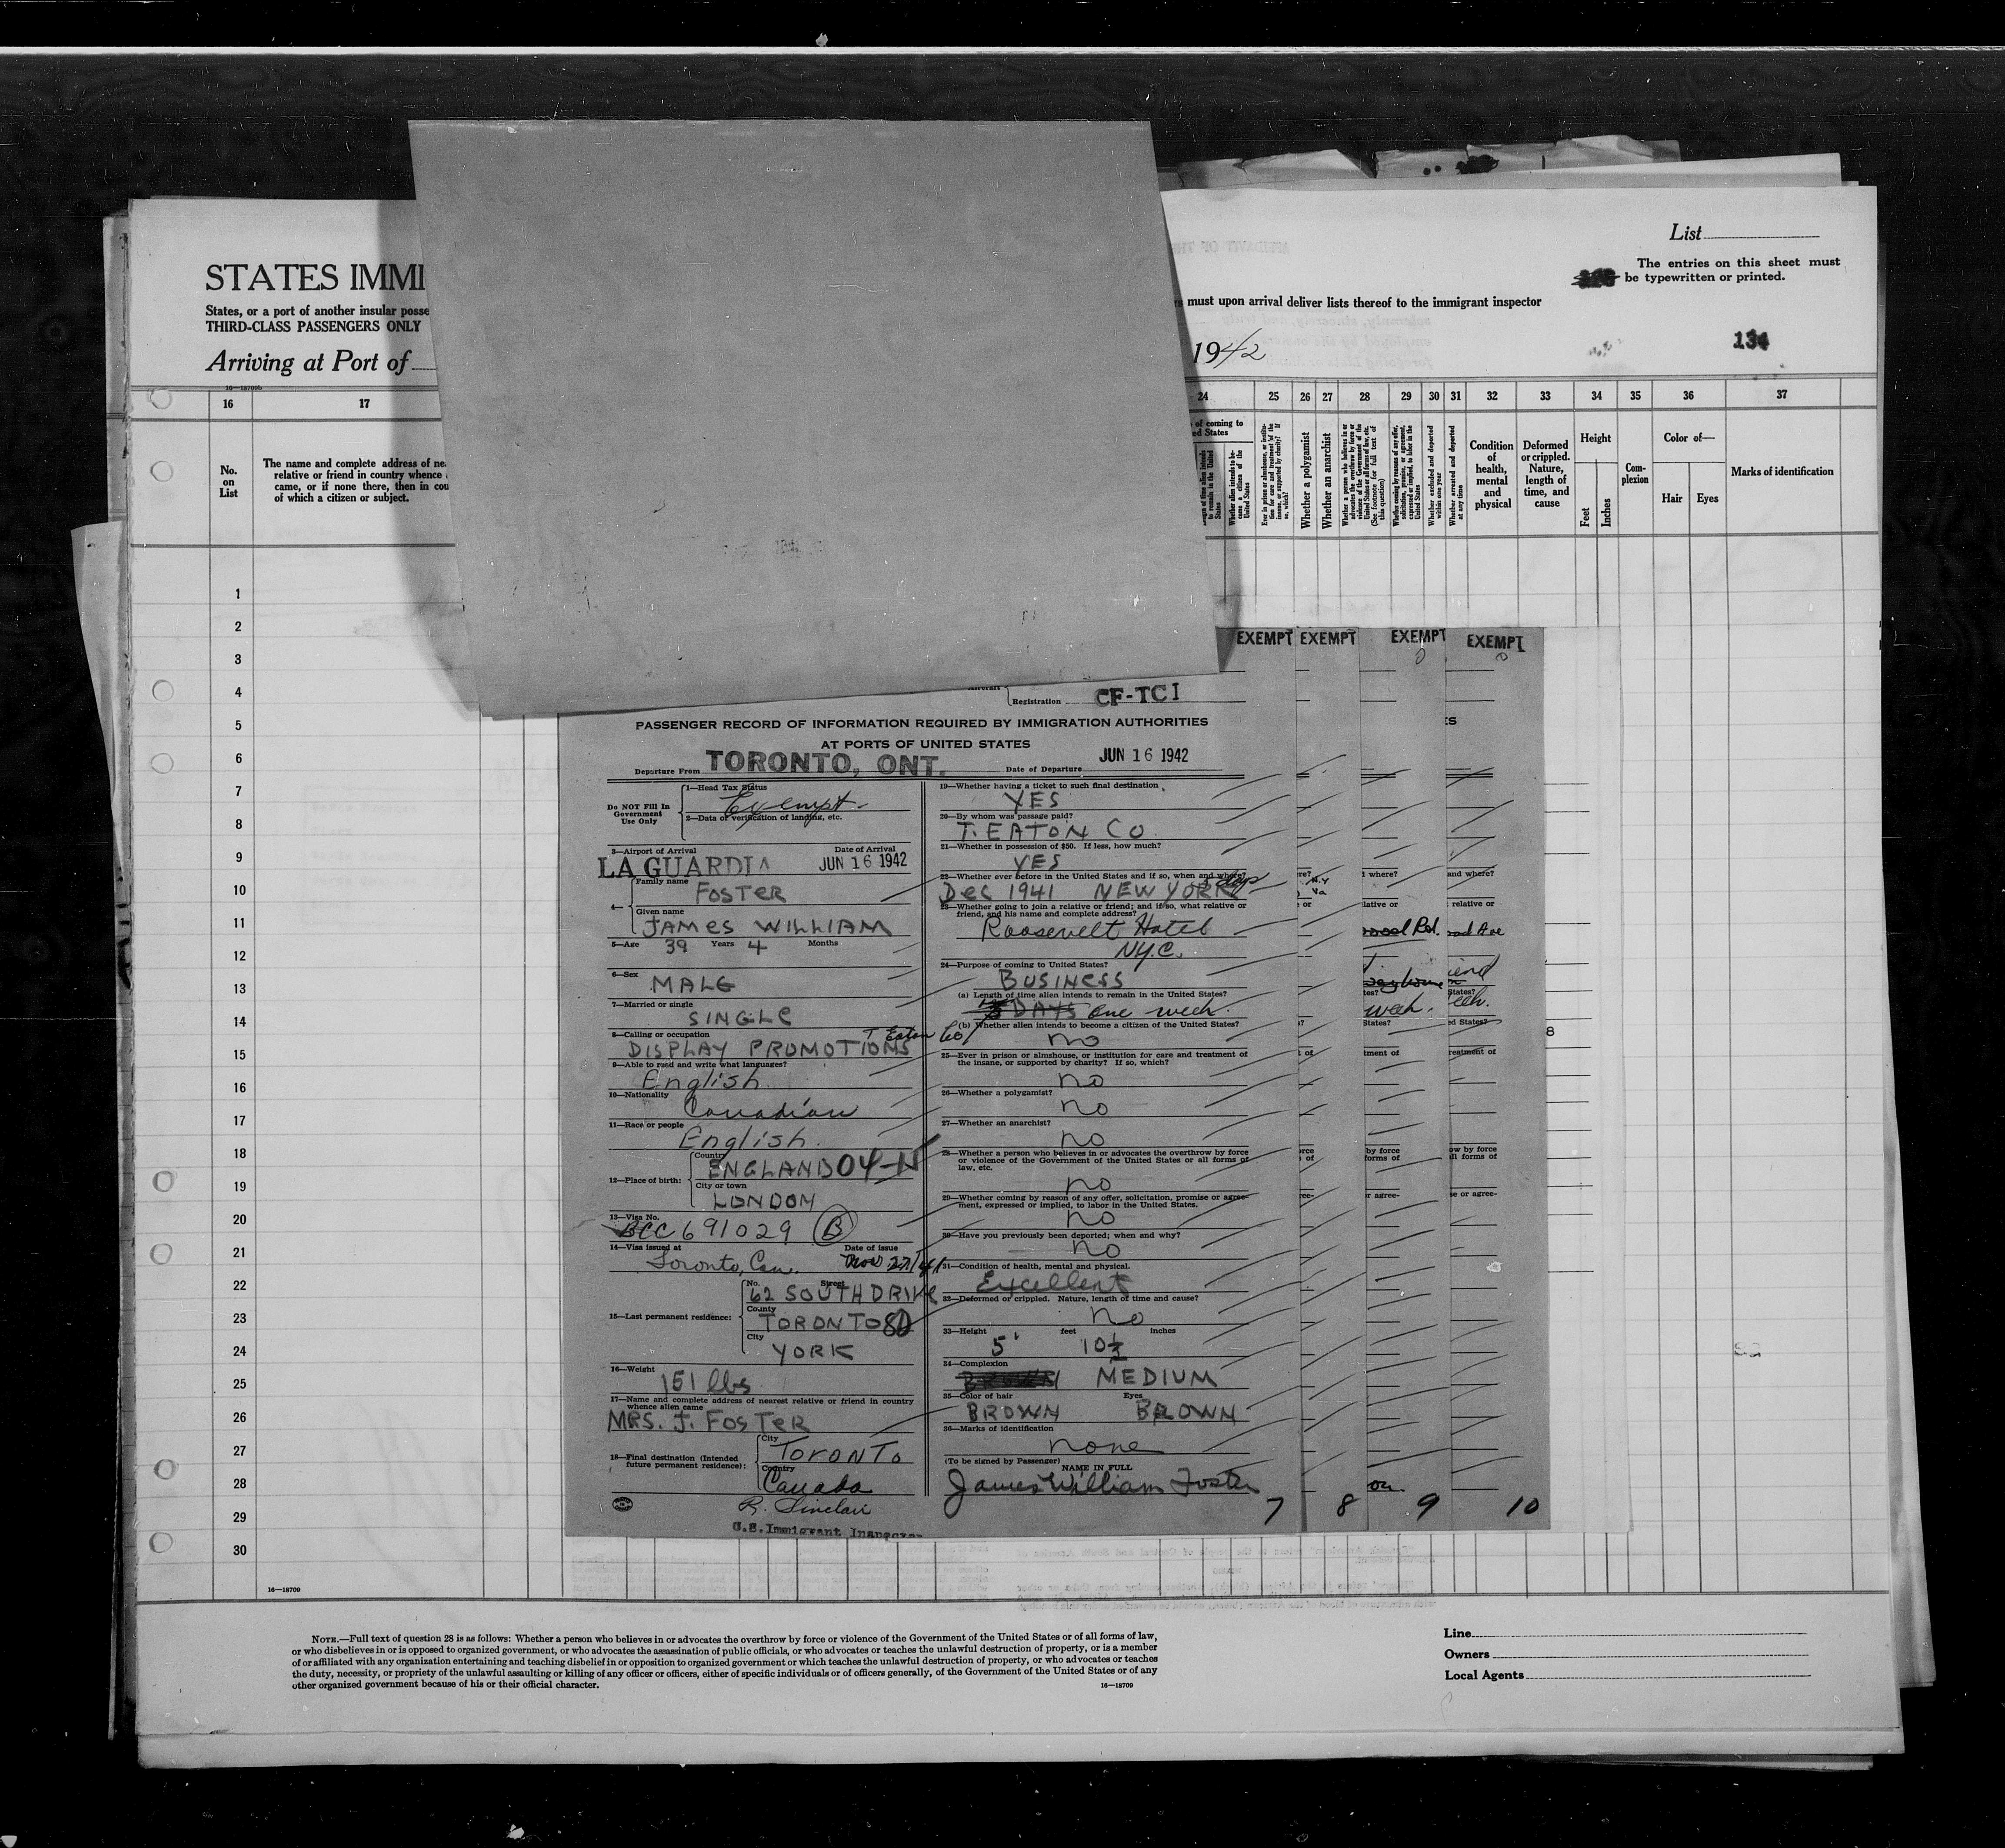 List
The entries on this sheet must
be typewritten or printed.
STATES IMMI
States, or a port of another insular posse
must upon arrival deliver lists thereof to the immigrant inspector
THIRD-CLASS PASSENGERS ONLY
Arriving at Port of
1942
134
16 17 24 25 26 27 28 29 30 31 32 33 34 35 36 37
No.
on
List
The name and complete address of ne
relative or friend in country whence
came, or if none there, then in cou
of which a citizen or subject.
of coming to
ed States
Whether a polygamist
Whether an anarchist
Whether excluded and deported
within one year
Whether arrested and deported
at any time
Condition
of
health,
mental
and
physical
Deformed
or crippled.
Nature,
length of
time, and
cause
Height
Feet
Inches
Com-
plexion
Color of—
Hair
Eyes
Marks of identification
1
2
3
4
5
6
7
8
9
10
11
12
13
14
15
16
17
18
19
20
21
22
23
24
25
26
27
28
29
30
16—18709
EXEMPT EXEMPT EXEMPT EXEMPT
Registration CF-TCI
PASSENGER RECORD OF INFORMATION REQUIRED BY IMMIGRATION AUTHORITIES
AT PORTS OF UNITED STATES
Departure From TORONTO, ONT. Date of Departure JUN 16 1942
Do NOT Fill In
Government
Use Only
1—Head Tax Status
Exempt
2—Data of verification of landing, etc.
3—Airport of Arrival Date of Arrival
LA GUARDIA JUN 16 1942
4—
Family name
FOSTER
Given name
JAMES WILLIAM
5—Age 39 Years 4 Months
6—Sex
MALE
7—Married or single
SINGLE
8—Calling or occupation T Eaton Co
DISPLAY PROMOTIONS
9—Able to read and write what languages?
English
10—Nationality
Canadian
11—Race or people
English.
12—Place of birth:
Country
ENGLAND 04-N
City or town
LONDON
13—Visa No.
BCC 691029 B
14—Visa issued at Date of issue
Toronto, Can. Nov 27/41
15—Last permanent residence:
No. Street
62 SOUTH DRIVE
County
TORONTO 80
City
YORK
16—Weight
151 lbs
17—Name and complete address of nearest relative or friend in country
whence alien came
MRS. J. FOSTER
18—Final destination (Intended
future permanent residence):
City
TORONTO
Country
Canada
R. Sinclair
U.S. Immigrant Inspector
19—Whether having a ticket to such final destination.
YES
20—By whom was passage paid?
T. EATON CO.
21—Whether in possession of $50. If less, how much?
YES
22—Whether ever before in the United States and if so, when and where?
DEC 1941 NEW YORK
23—Whether going to join a relative or friend; and if so, what relative or
friend, and his name and complete address?
Roosevelt Hotel
N.Y.C.
24—Purpose of coming to United States?
BUSINESS
(a) Length of time alien intends to remain in the United States?
DAYS one week.
(b) Whether alien intends to become a citizen of the United States?
no
25—Ever in prison or almshouse, or institution for care and treatment of
the insane, or supported by charity? If so, which?
no
26—Whether a polygamist?
no
27—Whether an anarchist?
no
28—Whether a person who believes in or advocates the overthrow by force
or violence of the Government of the United States or all forms of
law, etc.
no
29—Whether coming by reason of any offer, solicitation, promise or agree-
ment, expressed or implied, to labor in the United States.
no
30—Have you previously been deported; when and why?
no
31—Condition of health, mental and physical.
Excellent
32—Deformed or crippled. Nature, length of time and cause?
no
33—Height feet inches
5' 10½
34—Complexion
MEDIUM
35—Color of hair Eyes
BROWN BROWN
36—Marks of identification
none
(To be signed by Passenger)
NAME IN FULL
James William Foster
7 8 9 10
NOTE.—Full text of question 28 is as follows: Whether a person who believes in or advocates the overthrow by force or violence of the Government of the United States or of all forms of law,
or who disbelieves in or is opposed to organized government, or who advocates the assassination of public officials, or who advocates or teaches the unlawful destruction of property, or is a member
of or affiliated with any organization entertaining and teaching disbelief in or opposition to organized government or which teaches the unlawful destruction of property, or who advocates or teaches
the duty, necessity, or propriety of the unlawful assaulting or killing of any officer or officers, either of specific individuals or of officers generally, of the Government of the United States or of any
other organized government because of his or their official character.
16—18709
Line
Owners
Local Agents